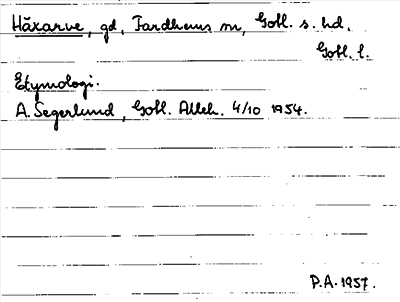 Häxarve, gd, Fardhems sn, Gotl. s. hd.
Gotl. l.
Etymologi.
A. Segerlund, Gotl. Alleh. 4/10 1954.
P.A. 1957.